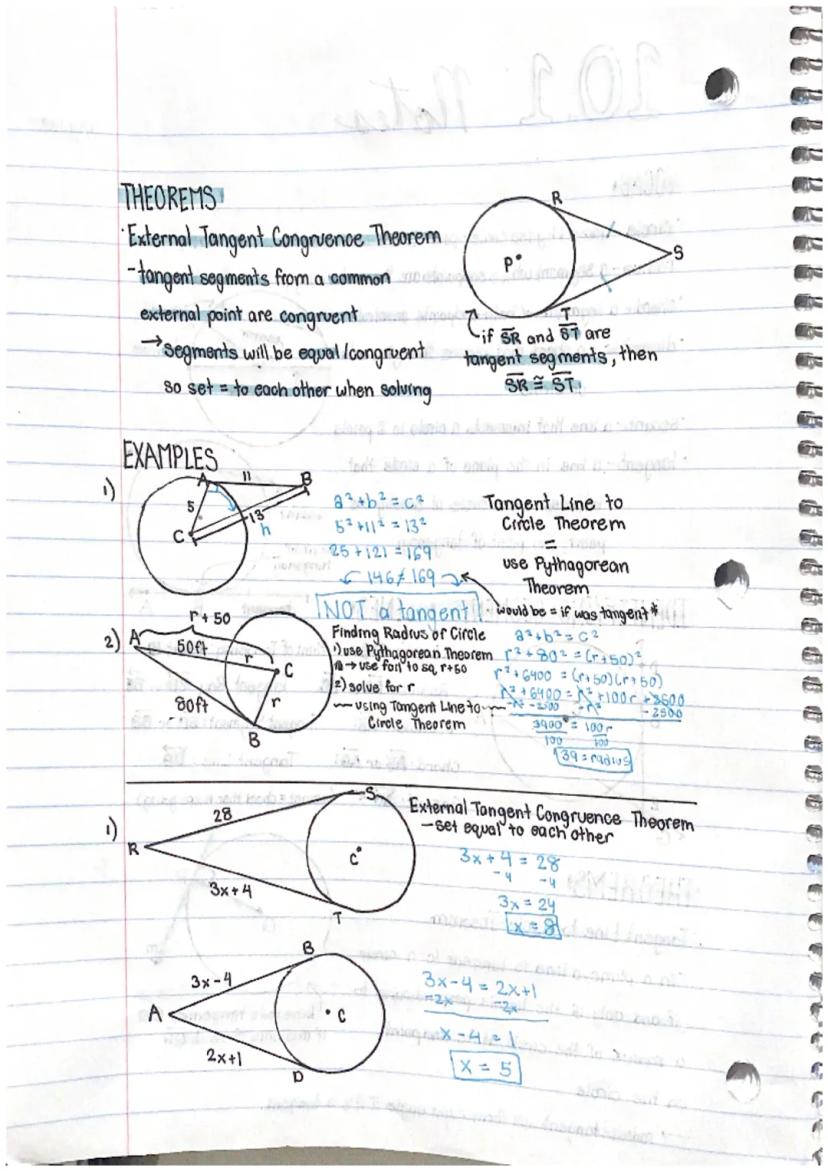 THEOREMS
· External Tangent Congruence Theorem
- tangent segments from a common
external point are congruent
→ segments will be equal/congruent
so set = to each other when solving
R
P
S
T
if SR and ST are
tangent segments, then
SR ≅ ST
EXAMPLES
1)
A
11
B
5
C
13
h
a²+b²=c²
5²+11²=13²
25+121=169
146≠169
NOT a tangent
would be = if was tangent*
Tangent Line to
Circle Theorem
=
use Pythagorean
Theorem
2)
r+50
A
50ft
r
C
80ft
r
B
Finding Radius of Circle
1) use Pythagorean Theorem
→ use foil to sq. r+50
2) solve for r
using Tangent Line to
Circle Theorem
a²+b²=c²
r²+80²=(r+50)²
r²+6400=(r+50)(r+50)
r²+6400=r²+100r+2500
-r² -2500 -r² -2500
3900=100r
100 100
39=radius
1)
28
S
R
C
3x+4
T
External Tangent Congruence Theorem
- set equal to each other
3x+4=28
-4 -4
3x=24
x=8
B
3x-4
A
C
2x+1
D
3x-4=2x+1
-2x -2x
x-4=1
x=5